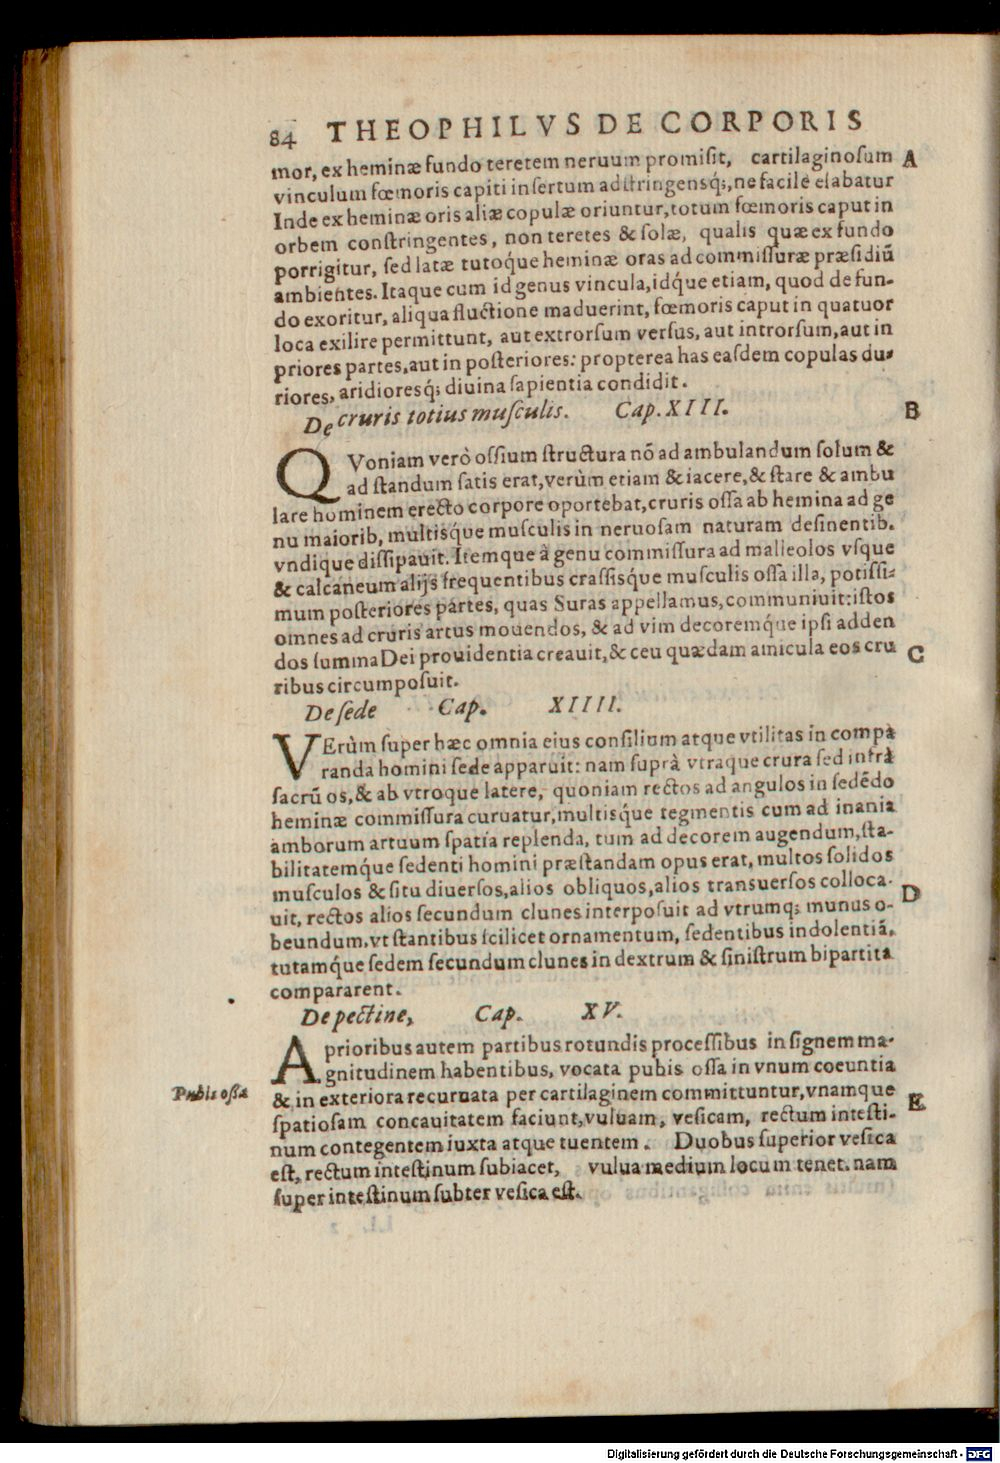 84 THEOPHILVS DE CORPORIS
mor, ex heminæ fundo teretem neruum promiſit, cartilaginoſum A
vinculum fœmoris capiti inſertum adſtringensq́;, ne facilè elabatur
Inde ex heminæ oris aliæ copulæ oriuntur, totum fœmoris caput in
orbem conſtringentes, non teretes & ſolæ, qualis quæ ex fundo
porrigitur, ſed latæ tutoq́ue heminæ oras ad commiſſuræ præſidiũ
ambientes. Itaque cum id genus vincula, idq́ue etiam, quod de fun-
do exoritur, aliqua fluctione maduerint, fœmoris caput in quatuor
loca exilire permittunt, aut extrorſum verſus, aut introrſum, aut in
priores partes, aut in poſteriores: propterea has eaſdem copulas du-
riores, aridioresq́; diuina ſapientia condidit.
De cruris totius muſculis. Cap. XIII. B
QVoniam verò oſsium ſtructura nõ ad ambulandum ſolum &
ad ſtandum ſatis erat, verùm etiam & iacere, & ſtare & ambu
lare hominem erecto corpore oportebat, cruris oſſa ab hemina ad ge
nu maiorib, multisq́ue muſculis in neruoſam naturam deſinentib.
vndique diſsipauit. Itemque à genu commiſſura ad malleolos vſque
& calcaneum alijs frequentibus craſsisq́ue muſculis oſſa illa, potiſsi-
mum poſteriores partes, quas Suras appellamus, communiuit: iſtos
omnes ad cruris artus mouendos, & ad vim decoremq́ue ipſi adden
dos ſumma Dei prouidentia creauit, & ceu quædam amicula eos cru C
ribus circumpoſuit.
De ſede Cap. XIIII.
VErùm ſuper hæc omnia eius conſilium atque vtilitas in compa
randa homini ſede apparuit: nam ſuprà vtraque crura ſed infrà
ſacrũ os, & ab vtroque latere, quoniam rectos ad angulos in ſedẽdo
heminæ commiſſura curuatur, multisq́ue tegmentis cum ad inania
amborum artuum ſpatia replenda, tum ad decorem augendum, ſta-
bilitatemq́ue ſedenti homini præſtandam opus erat, multos ſolidos
muſculos & ſitu diuerſos, alios obliquos, alios transuerſos colloca- D
uit, rectos alios ſecundum clunes interpoſuit ad vtrumq; munus o-
beundum, vt ſtantibus ſcilicet ornamentum, ſedentibus indolentiã,
tutamq́ue ſedem ſecundum clunes in dextrum & ſiniſtrum bipartita
compararent.
De pectine, Cap. XV.
A prioribus autem partibus rotundis proceſsibus inſignem ma-
gnitudinem habentibus, vocata pubis oſſa in vnum coeuntia
Pubis oſſa
& in exteriora recuruata per cartilaginem committuntur, vnamque E
ſpatioſam concauitatem faciunt, vuluam, veſicam, rectum inteſti-
num contegentem iuxta atque tuentem. Duobus ſuperior veſica
eſt, rectum inteſtinum ſubiacet, vulua medium locum tenet. nam
ſuper inteſtinum ſubter veſica eſt.
Digitalisierung gefördert durch die Deutsche Forschungsgemeinschaft - DFG